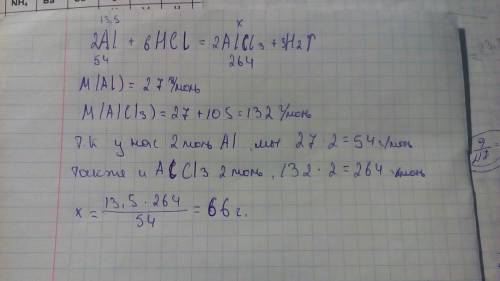 NH₄ Ba
13,5 x
2Al + 6HCl = 2AlCl₃ + 3H₂↑
54 264
M(Al) = 27 г/моль
M(AlCl₃) = 27 + 105 = 132 г/моль
Т.к у нас 2 моль Al, 27·2 = 54 г/моль
также и AlCl3 2 моль, 132·2 = 264 г/моль
x = 13,5·264 / 54 = 66 г.